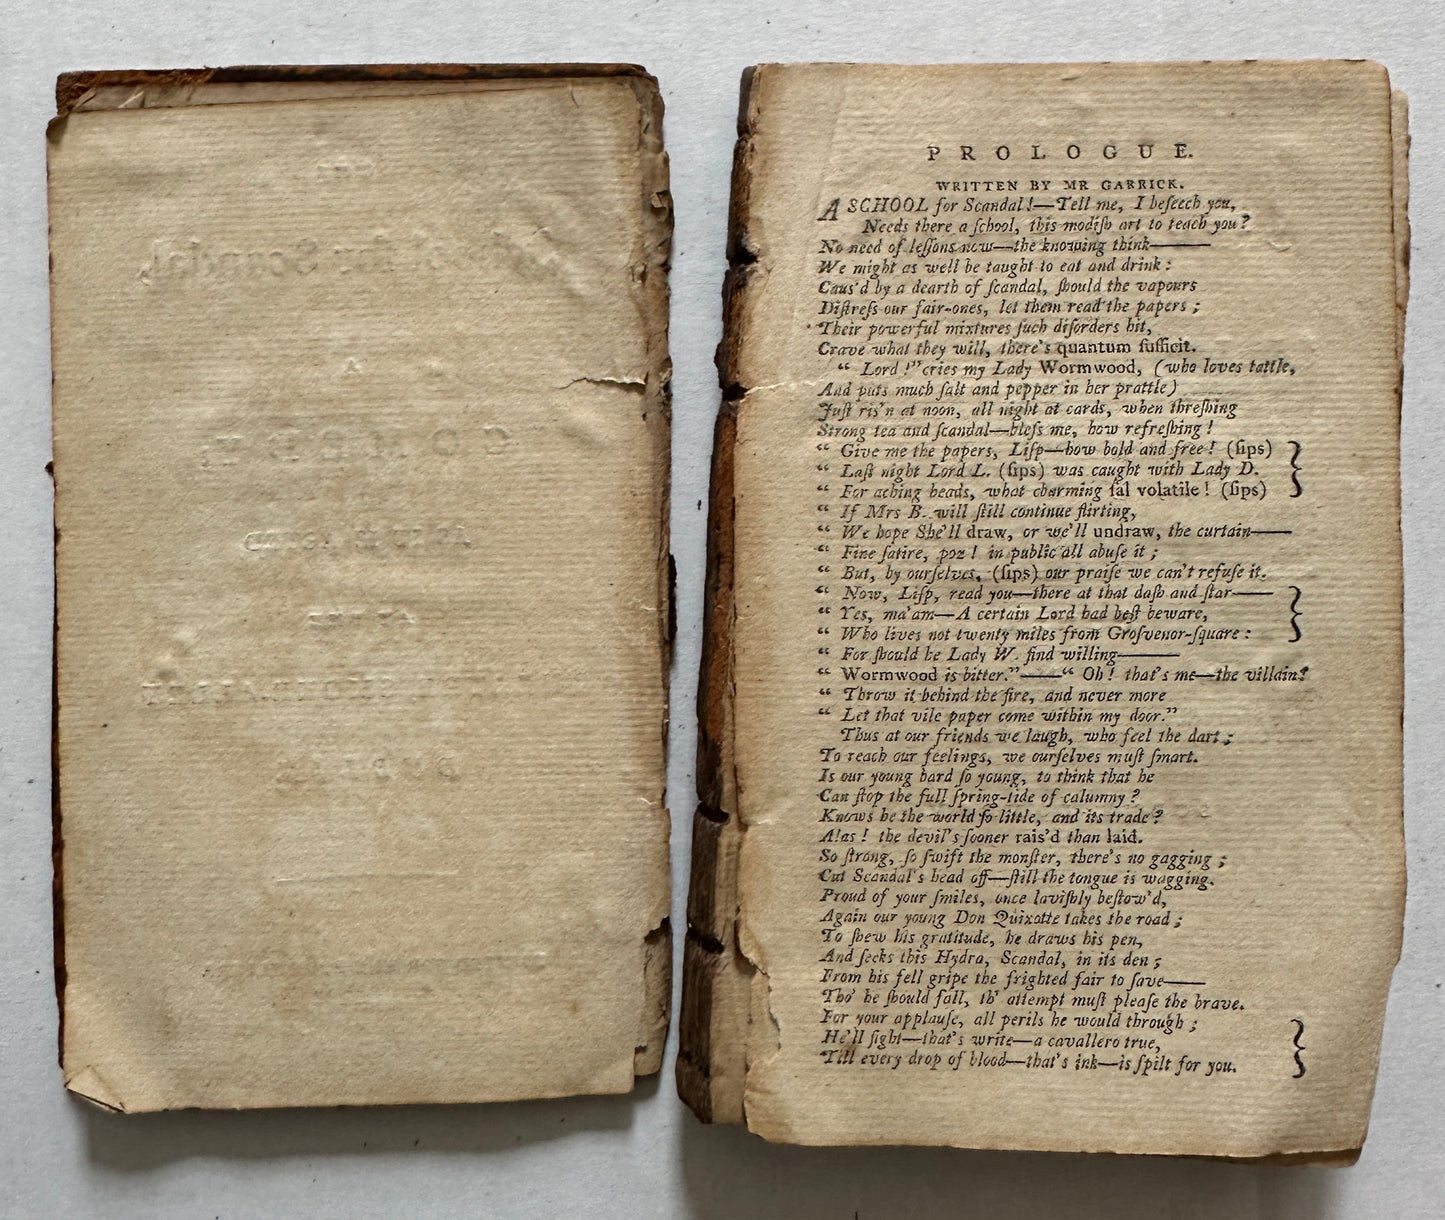 PROLOGUE.
WRITTEN BY MR GARRICK.
A SCHOOL for Scandal!—Tell me, I beſeech you,
Needs there a ſchool, this modiſh art to teach you?
No need of leſſons now—the knowing think——
We might as well be taught to eat and drink:
Caus'd by a dearth of ſcandal, ſhould the vapours
Diſtreſs our fair-ones, let them read the papers;
Their powerful mixtures ſuch diſorders hit,
Crave what they will, there's quantum ſufficit.
“ Lord!” cries my Lady Wormwood, (who loves tattle,
And puts much ſalt and pepper in her prattle)
Juſt ris'n at noon, all night at cards, when threſhing
Strong tea and ſcandal—bleſs me, how refreſhing!
“ Give me the papers, Liſp—how bold and free! (ſips)
“ Laſt night Lord L. (ſips) was caught with Lady D.
“ For aching heads, what charming ſal volatile! (ſips)
“ If Mrs B. will ſtill continue flirting,
“ We hope She'll draw, or we'll undraw, the curtain——
“ Fine ſatire, poz! in public all abuſe it;
“ But, by ourſelves, (ſips) our praiſe we can't refuſe it.
“ Now, Liſp, read you—there at that daſh and ſtar——
“ Yes, ma'am—A certain Lord had beſt beware,
“ Who lives not twenty miles from Groſvenor-ſquare:
“ For ſhould he Lady W. find willing——
“ Wormwood is bitter.”——“ Oh! that's me—the villain!
“ Throw it behind the fire, and never more
“ Let that vile paper come within my door.”
Thus at our friends we laugh, who feel the dart;
To reach our feelings, we ourſelves muſt ſmart.
Is our young bard ſo young, to think that he
Can ſtop the full ſpring-tide of calumny?
Knows he the world ſo little, and its trade?
Alas! the devil's ſooner rais'd than laid.
So ſtrong, ſo ſwift the monſter, there's no gagging;
Cut Scandal's head off—ſtill the tongue is wagging.
Proud of your ſmiles, once laviſhly beſtow'd,
Again our young Don Quixotte takes the road;
To ſhew his gratitude, he draws his pen,
And ſeeks this Hydra, Scandal, in its den;
From his fell gripe the frighted fair to ſave——
Tho' he ſhould fall, th' attempt muſt pleaſe the brave.
For your applauſe, all perils he would through;
He'll fight—that's write—a cavallero true,
Till every drop of blood—that's ink—is ſpilt for you.